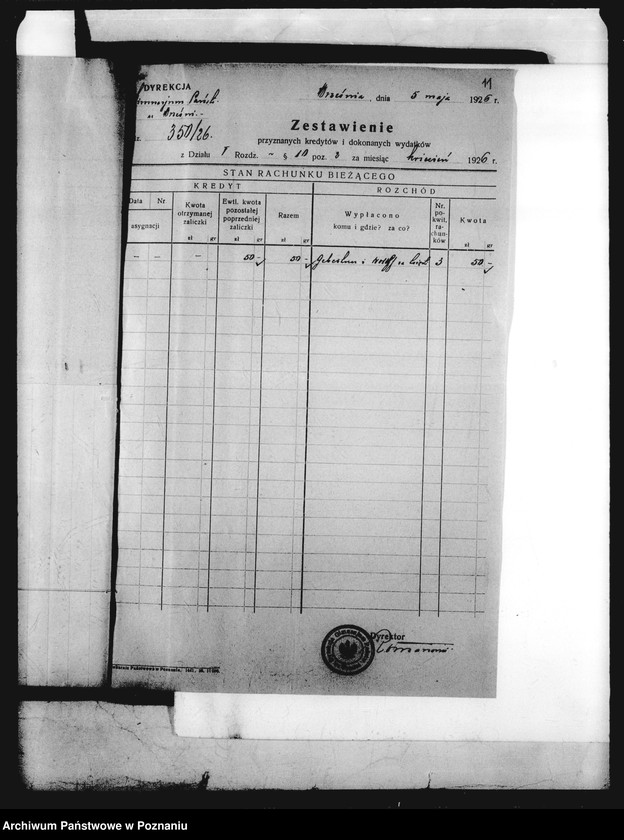 11
DYREKCJA
Września, dnia 5 maja 1926 r.
Gimnazjum Państ.
350/26.
Zestawienie
przyznanych kredytów i dokonanych wydatków
z Działu I Rozdz. - § 10 poz. 3 za miesiąc kwiecień 1926 r.
STAN RACHUNKU BIEŻĄCEGO
KREDYT ROZCHÓD
Data Nr
asygnacji
Kwota otrzymanej zaliczki
zł gr
Ewtl. kwota pozostałej poprzedniej zaliczki
zł gr
Razem
zł gr
Wypłacono
komu i gdzie? za co?
Nr. po-kwit. ra-chun-ków
Kwota
zł gr
– – – 50 – 50 – i 3 50 –
Dyrektor
Archiwum Państwowe w Poznaniu